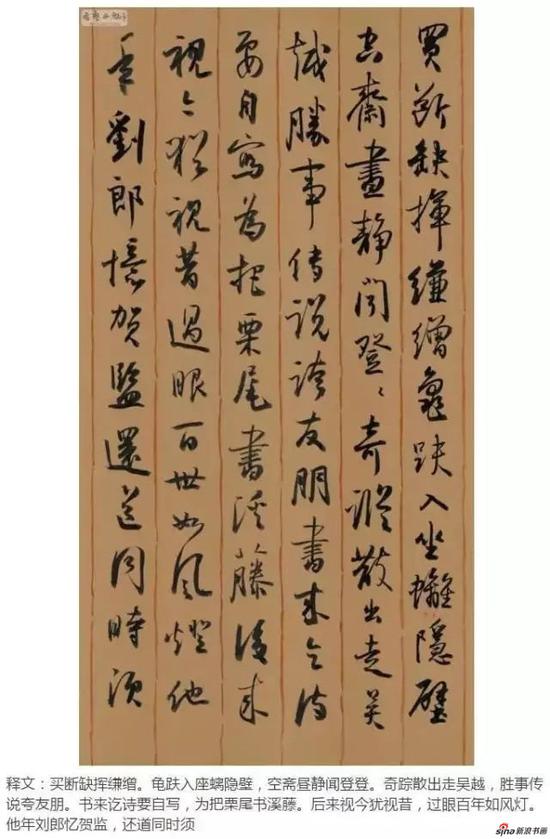 買斷缺揮縑繒龜趺入坐螭隱壁
空齋晝靜聞登〻奇蹤散出走吴
越勝事傳説誇友朋書来乞诗
要自寫為把栗尾書溪藤後来
視今猶視昔過眼百世如風燈他
年劉郎憶賀監還道同時須
释文：买断缺挥缣缯。龟趺入座螭隐壁，空斋昼静闻登登。奇踪散出走吴越，胜事传
说夸友朋。书来讫诗要自写，为把栗尾书溪藤。后来视今犹视昔，过眼百年如风灯。
他年刘郎忆贺监，还道同时须
sina新浪书画